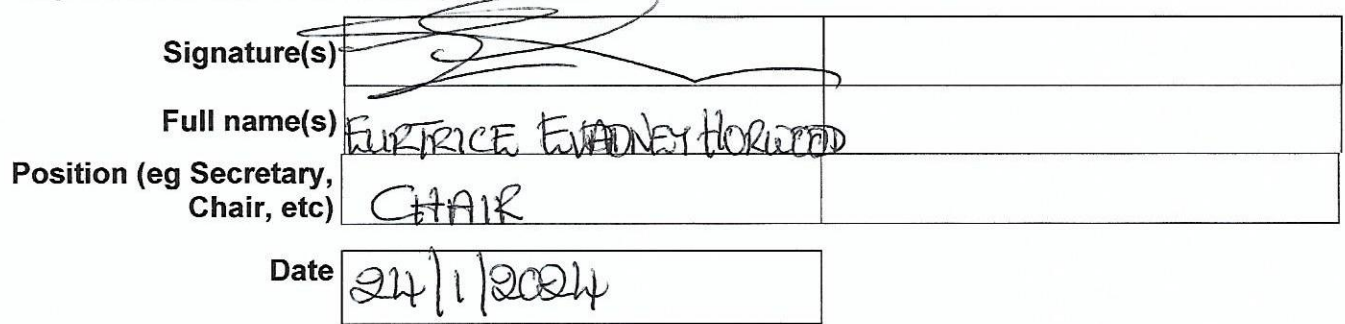 Signature(s)
Full name(s) EURTRICE EVADNEY HORWOOD
Position (eg Secretary,
Chair, etc) CHAIR
Date 24/1/2024